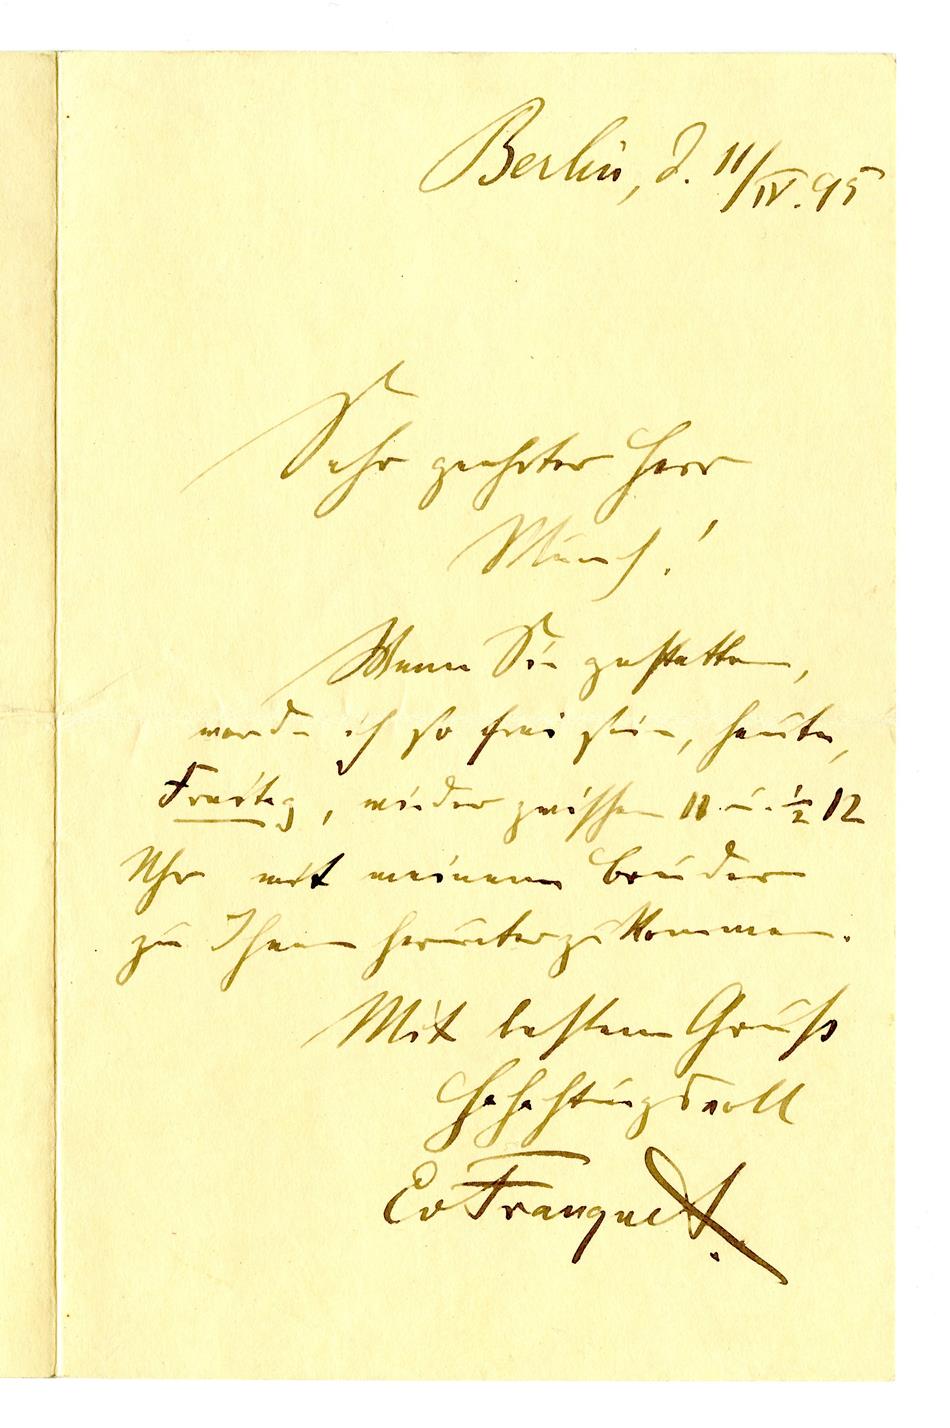 Berlin, d. 11/IV. 95
Sehr geehrter Herr
Munch!
Wenn Sie gestatten,
werde ich so frei sein, heute,
Freitag, wieder zwischen 11 u. ½ 12
Uhr mit meinem Bruder
zu Ihnen herunterzukommen.
Mit bestem Gruß
Hochachtungsvoll
Ev Franquet.